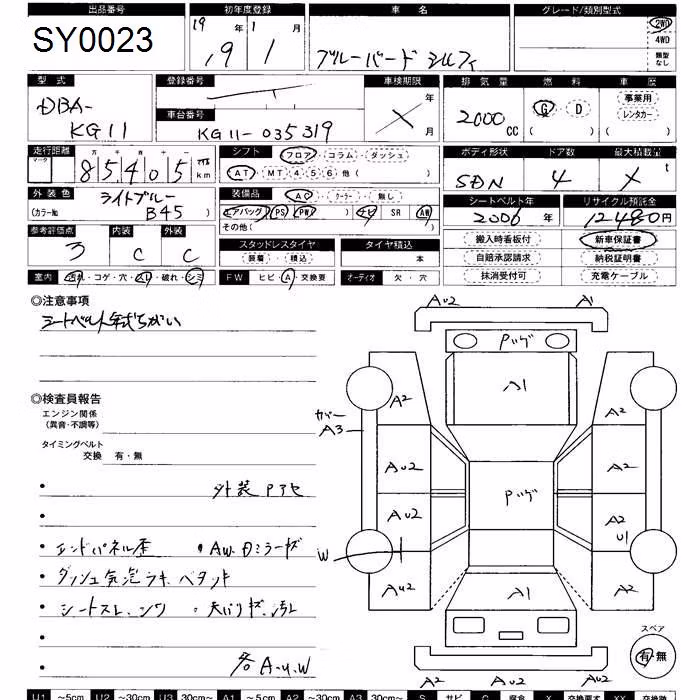 出品番号 初年度登録 車 名 グレード/類別型式
SY0023 19 年 1 月 ブルーバードシルフィ 2WD
19 1 4WD
類型なし
型 式 登録番号 車検期限 排 気 量 燃 料 車 歴
DBA- 年 2000 CC G D 事業用
KG11 車台番号 KG11-035319 月 レンタカー
走行距離 マーク 85405 km シフト フロア・コラム・ダッシュ ボディ形状 ドア数 最大積載量
AT MT 4 5 6 他 ( ) SDN 4 t
外 装 色 ライトブルー 装備品 AC・クーラー・無し シートベルト年 リサイクル預託金
(カラーNo B45 ) エアバッグ PS PW ナビ SR AW 2006 年 12480円
参考評価点 内装 外装 その他 ( ) 搬入時看板付 新車保証書
3 C C スタッドレスタイヤ タイヤ積込 自賠承認請求 納税証明書
装着・積込 本 抹消受付可 充電ケーブル
室内 汚れ・コゲ・穴・スリ・破れ・シミ FW ヒビ・A・交換要 オーディオ 欠・穴
◎注意事項
シートベルト年式ちがい
◎検査員報告
エンジン関係
(異音・不調等)
タイミングベルト
交換 有・無
・ 外装Pアセ
・エンドパネル歪 ・AW.Dミラーキズ
・ダッシュ気泡
・シートスレ、シワ ・天バリキズ、汚れ
・ 各A-U.W
AU2 A1
Pハゲ
A1
A2 A2
カバー
A3
AU2 A2
Pハゲ
AU2 A2
U1
W
AU2 A2
A1
スペア
有・無
A2 AU2 AU2
U1 ~5cm U2 ~30cm U3 30cm~ A1 ~5cm A2 ~30cm A3 30cm~ S サビ C 腐食 X 交換要す XX 交換跡